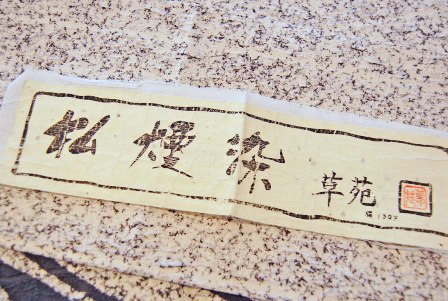 松煙染
草苑